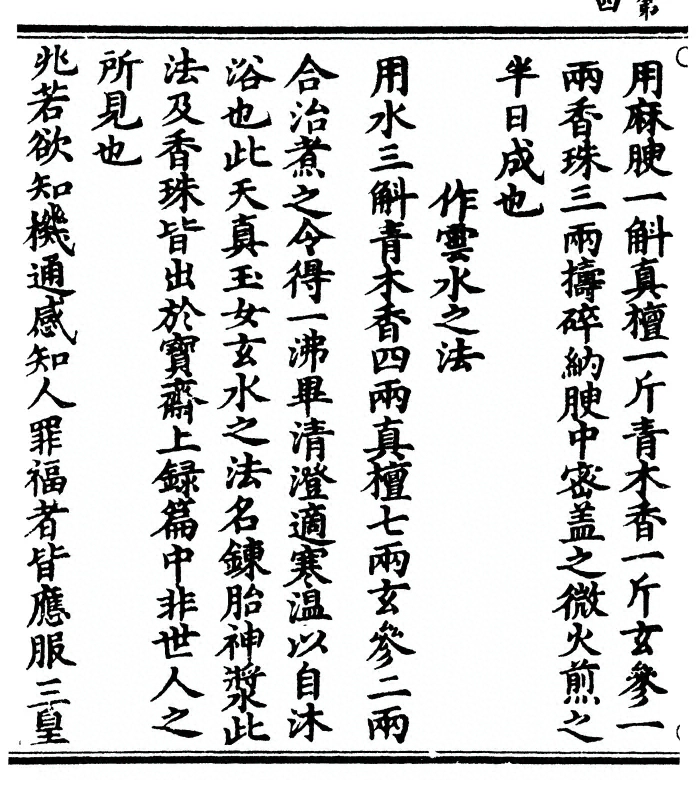 第
四
用麻腴一斛真檀一斤青木香一斤玄參一
兩香珠三兩擣碎納腴中密盖之微火煎之
半日成也
作雲水之法
用水三斛青木香四兩真檀七兩玄參二兩
合治煮之令得一沸畢清澄適寒溫以自沐
浴也此天真玉女玄水之法名鍊胎神漿此
法及香珠皆出於寶齋上録篇中非世人之
所見也
兆若欲知機通感知人罪福者皆應服三皇